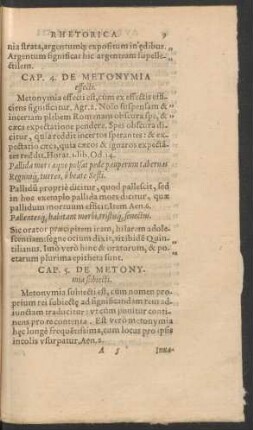 RHETORICA. 9
nia strata, argentumq; expositum in ędibus. „
Argentum significat hic argenteam supelle- „
ctilem.
CAP. 4. DE METONYMIA
effecti.
Metonymia effecti est, cùm ex effectis effi-
ciens significatur, Agr. 2. Nolo suspensam &
incertam plebem Romanam obscura spe, & „
cæca expectatione pendere. Spes obscura di-
citur, quia reddit incertos sperantes: & ex-
pectatio cæca, quia cæcos & ignaros expectā-
tes reddit. Horat. 1. lib. Od. 4.
Pallida mors æquo pulsat pede pauperum tabernas
Regumq; turres, ô beate Sesti.
Pallidū propriè dicitur, quod pallescit, sed
in hoc exemplo pallida mors dicitur, quæ
pallidum mortuum efficit. Item Aen. 6.
Pallentesq; habitant morbi, tristisq; senectus.
Sic orator præcipitem iram, hilarem adole-
scentiam, segne otium dixit, vt ibidē Quin-
tilianus. Imò verò hinc & oratorum, & po-
etarum plurima epitheta sunt.
CAP. 5. DE METONY-
mia subiecti.
Metonymia subiecti est, cùm nomen pro-
prium rei subiectę ad significandam rem ad-
iunctam traducitur: vt cùm ponitur conti-
nens pro re contenta. Est verò metonymia
hęc longè frequētissima, cum locus pro ipsis
incolis vsurpatur, Aen. 2.
A 5